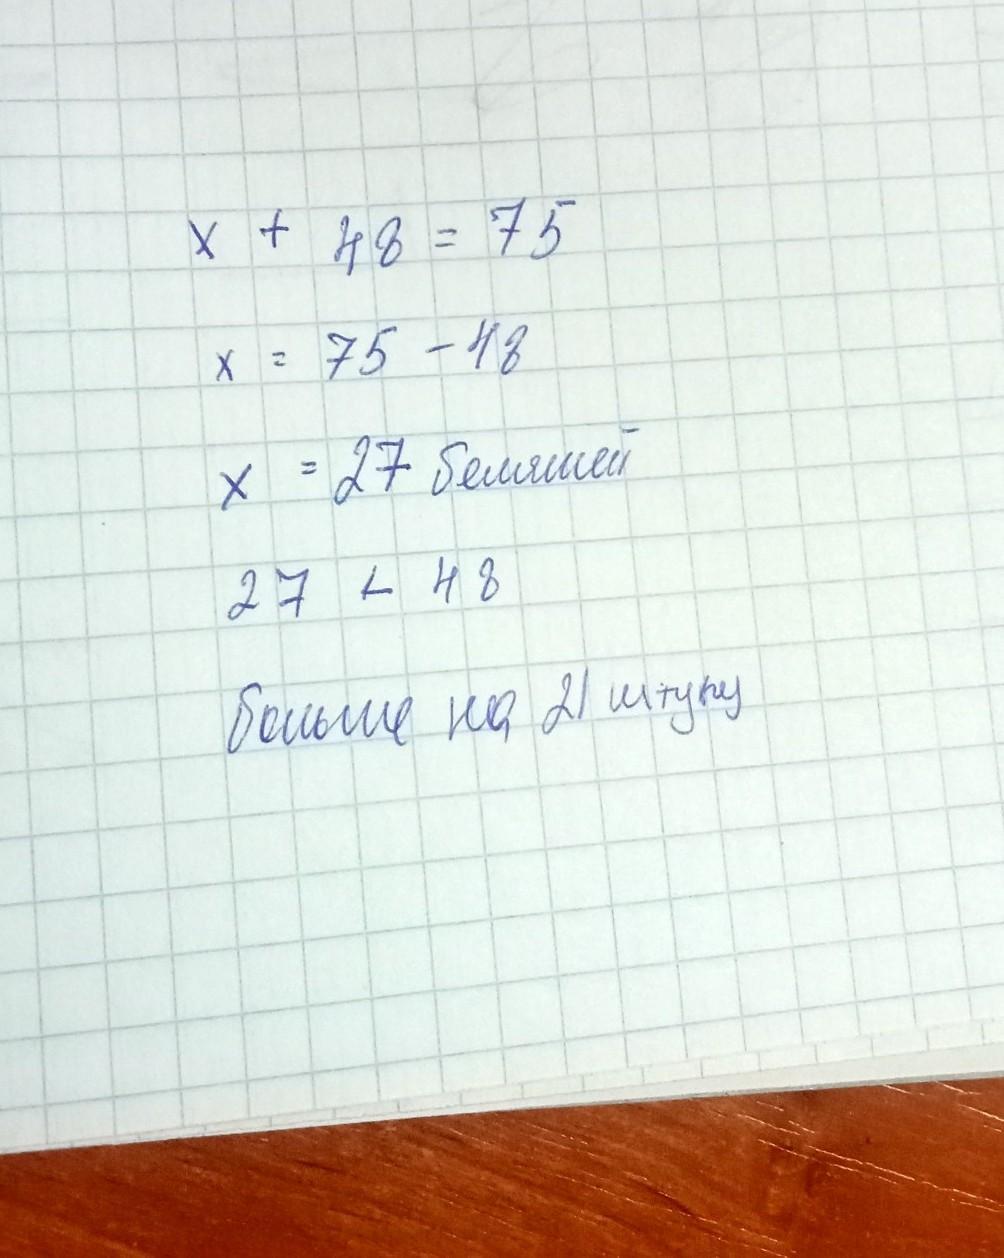 x + 48 = 75
x = 75 - 48
x = 27 беляшей
27 < 48
больше на 21 штуку